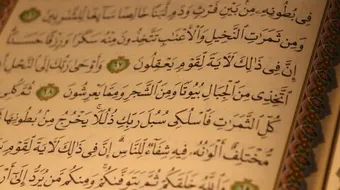 فِى بُطُونِهِۦ مِنۢ بَيْنِ فَرْثٍ وَدَمٍ لَّبَنًا خَالِصًا سَآئِغًا لِّلشَّٰرِبِينَ
وَمِن ثَمَرَٰتِ ٱلنَّخِيلِ وَٱلْأَعْنَٰبِ تَتَّخِذُونَ مِنْهُ سَكَرًا وَرِزْقًا حَسَنًا
إِنَّ فِى ذَٰلِكَ لَءَايَةً لِّقَوْمٍ يَعْقِلُونَ ٦٧ وَأَوْحَىٰ رَبُّكَ إِلَى ٱلنَّحْلِ
ٱتَّخِذِى مِنَ ٱلْجِبَالِ بُيُوتًا وَمِنَ ٱلشَّجَرِ وَمِمَّا يَعْرِشُونَ ٦٨
كُلِّ ٱلثَّمَرَٰتِ فَٱسْلُكِى سُبُلَ رَبِّكِ ذُلُلًا يَخْرُجُ مِنۢ بُطُونِهَا
مُّخْتَلِفٌ أَلْوَٰنُهُۥ فِيهِ شِفَآءٌ لِّلنَّاسِ إِنَّ فِى ذَٰلِكَ لَءَايَةً لِّقَوْمٍ
وَٱللَّهُ خَلَقَكُمْ ثُمَّ يَتَوَفَّىٰكُمْ وَمِنكُم مَّن يُرَدُّ